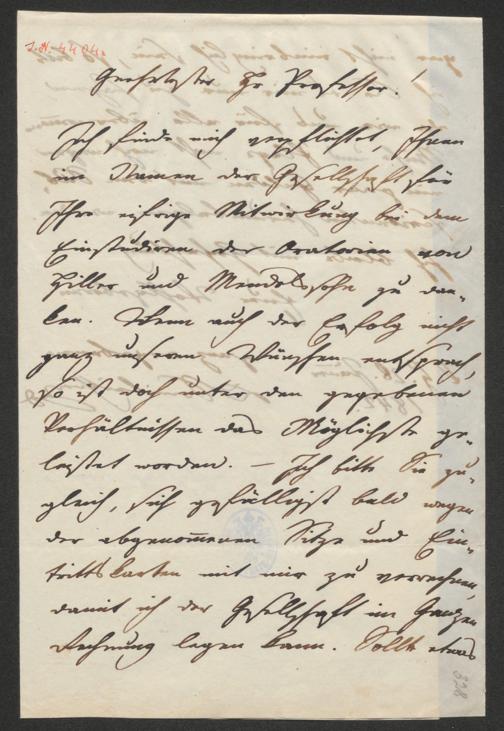 I.N. 44040
Geehrtester Hr Professor!
Ich finde mich verpflichtet Ihnen
im Namen der Gesellschaft für
Ihre eifrige Mitwirkung bei dem
Einstudiren der Oratorien von
Hiller und Mendelssohn zu dan-
ken. Wenn auch der Erfolg nicht
ganz unseren Wünschen entsprach,
so ist doch unter den gegebenen
Verhältnissen das Möglichste ge-
leistet worden. – Ich bitte Sie zu-
gleich, sich gefälligst bald wegen
der abgenommenen Sitze und Ein-
trittskarten mit mir zu verrechnen,
damit ich der Gesellschaft im Ganzen
Rechnung legen kann. Sollte etwas
328